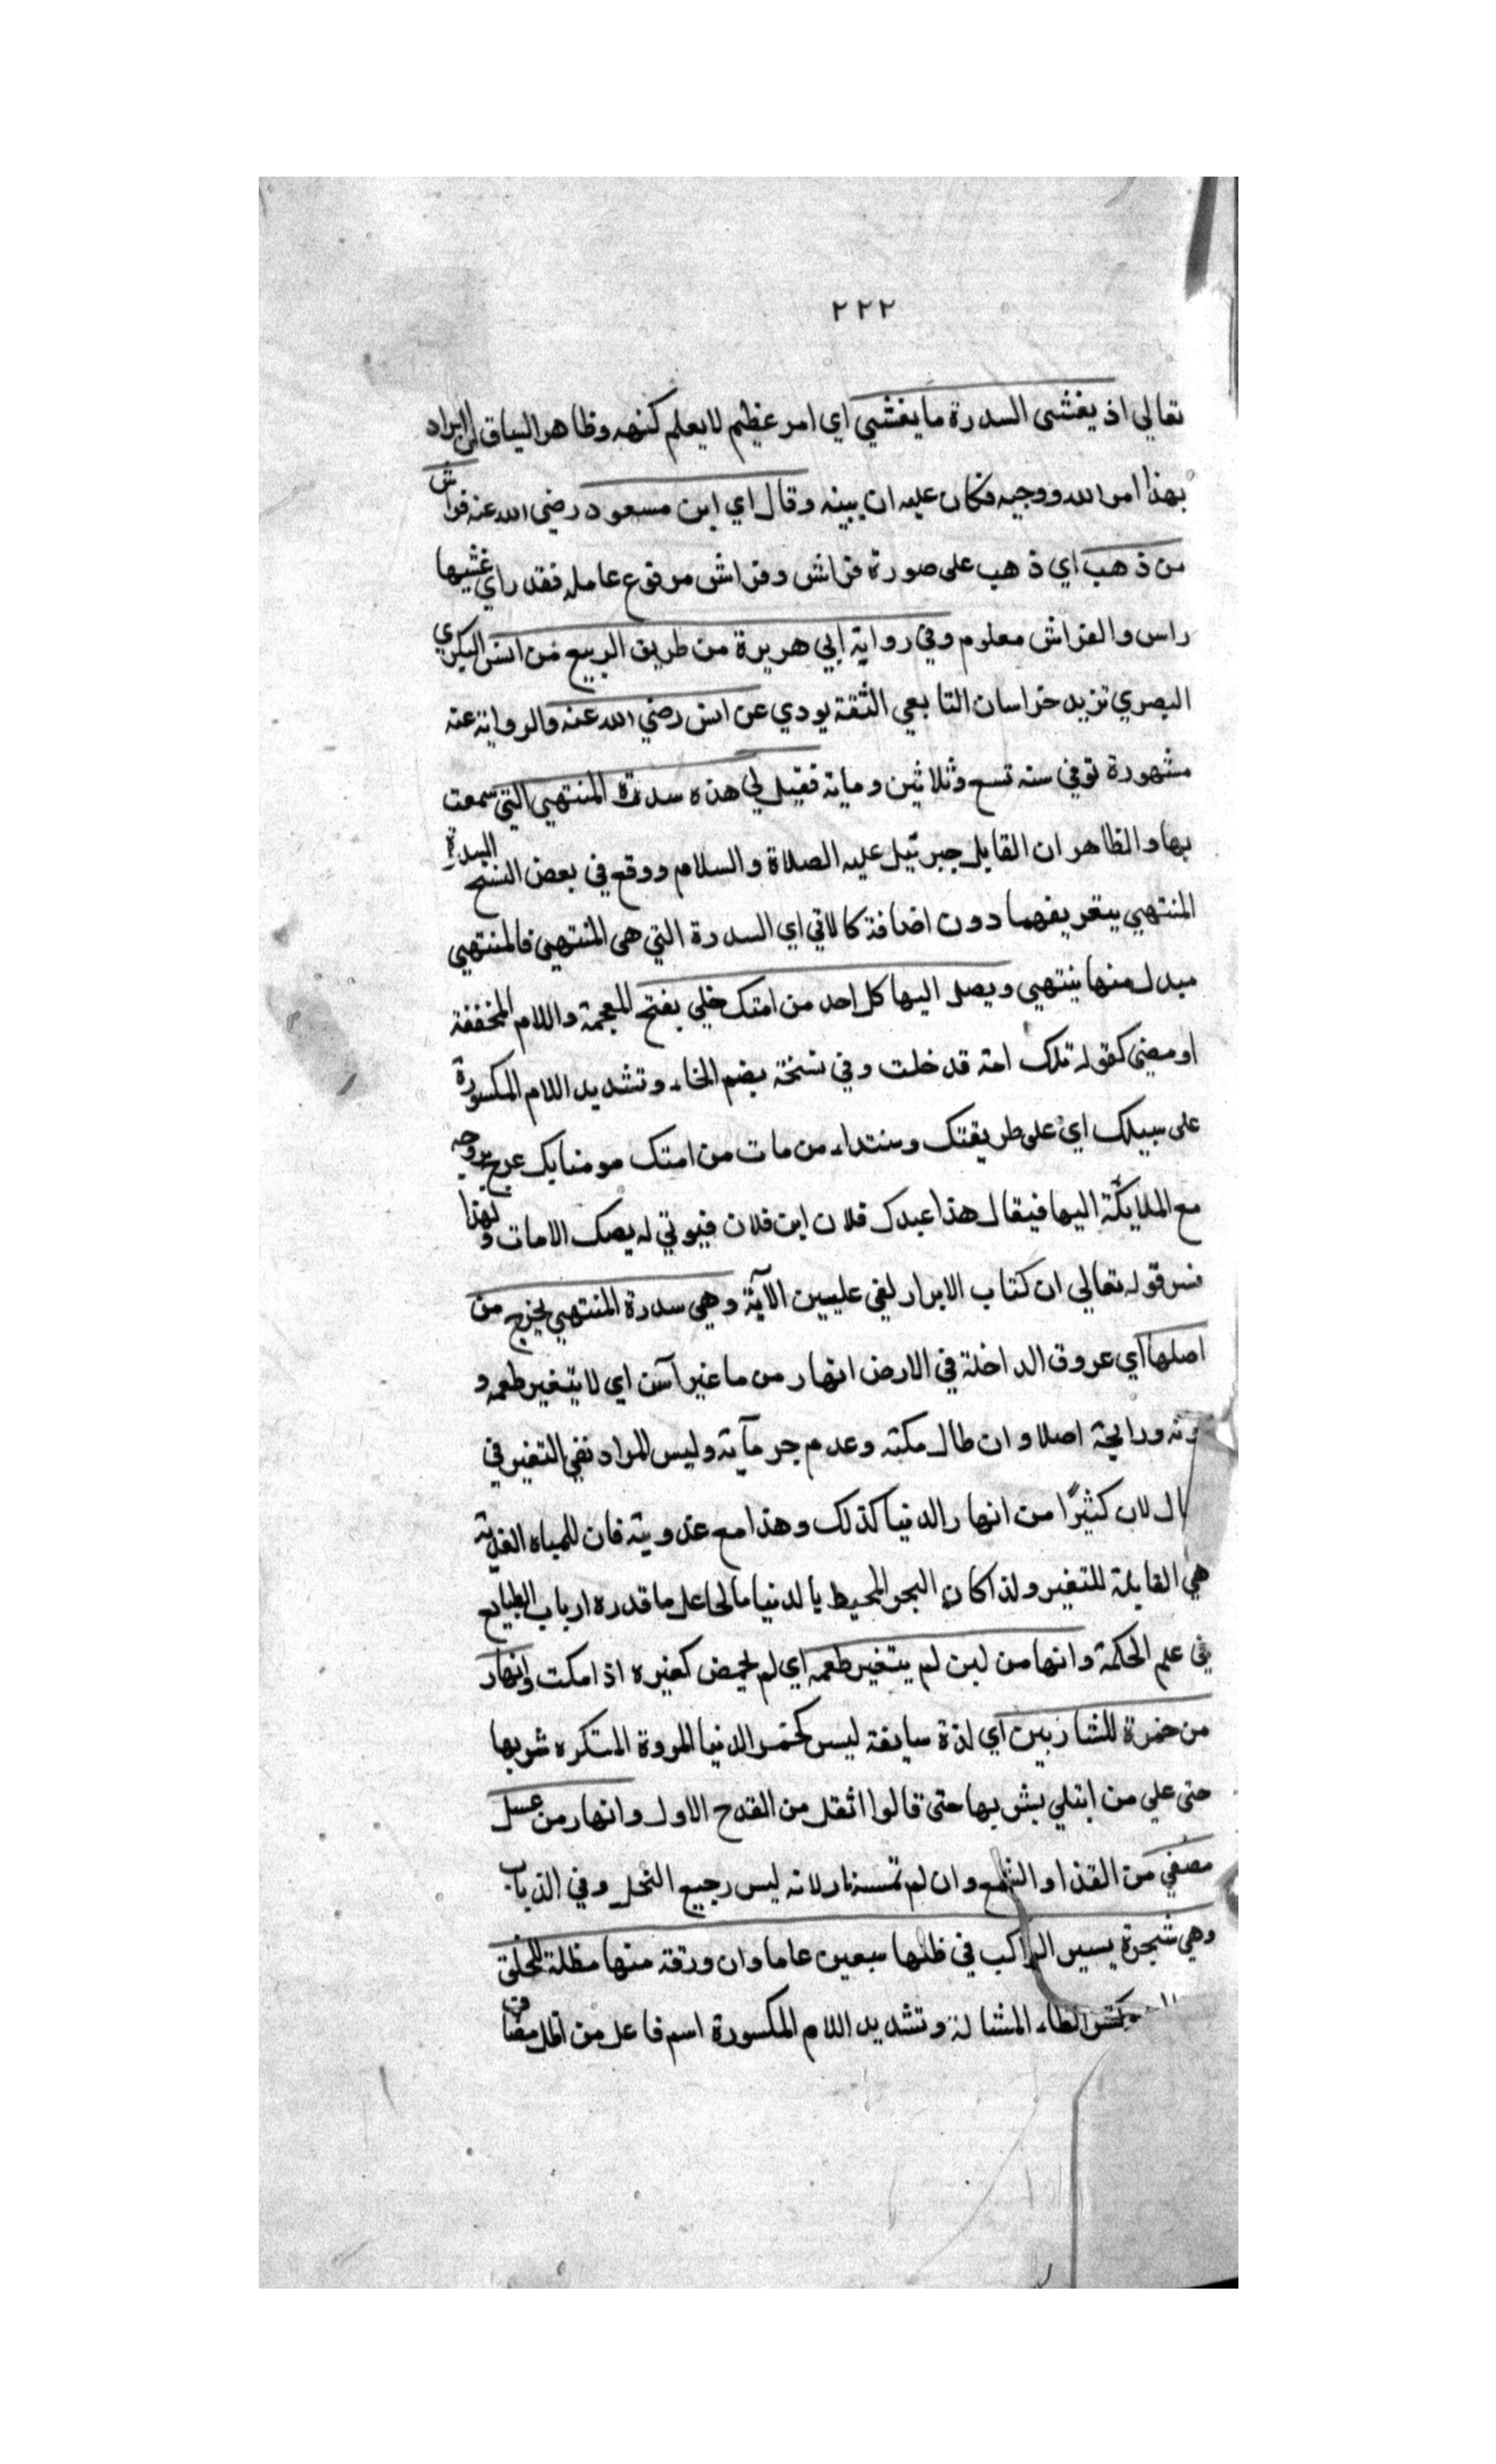 ٢٢٢
تعالى اذ يغشى السدرة ما يغشى اي امر عظيم لا يعلم كنهه وظاهر السياق ان المراد
بهذا امر الله ووحيه فكان عليه ان يبينه وقال اي ابن مسعود رضي الله عنه فراش
من ذهب اي ذهب على صورة فراش وفراش مرفوع عامله فقد راي غشيها
راس والفراش معلوم وفي رواية ابي هريرة من طريق الربيع من انس البكري
البصري نزيد خراسان التابعي الثقة يودي عن انس رضي الله عنه والرواية عنه
مشهورة توفي سنه تسع وثلاثين وماية فقيل لي هذه سدرة المنتهى التي سمعت
بها والظاهر ان القايل جبرئيل عليه الصلاة والسلام ووقع في بعض النسخ السدرة
المنتهي بتعريفهما دون اضافة كالاتي اي السدرة التي هي المنتهى فالمنتهي
مبدل منها ينتهي ويصل اليها كل احد من امتك خلي بفتح المعجمة واللام المخففة
او مضى كقوله تلك امة قد خلت وفي نسخة بضم الخاء وتشديد اللام المكسورة
على سبيلك اي على طريقتك وسنتك من مات من امتك مومنا بك عرج بروحه
مع الملايكة اليها فيقال هذا عبدك فلان ابن فلان فيوتي له بصك الامان ولهذا
فسر قوله تعالى ان كتاب الابرار لفي عليين الآية وهي سدرة المنتهى يخرج من
اصلها اي عروق الداخلة في الارض انهار من ما غير آسن اي لا يتغير طعمه و
ورايحة اصلا وان طال مكثه وعدم جر مآية وليس المراد نفي التغير في
لان كثيرًا من انهار الدنيا كذلك وهذا مع عذوبيته فان للمياه العذبة
هي القابلة للتغير ولذا كان البحر المحيط بالدنيا مالحا على ما قدره ارباب الطبايع
في علم الحكمة وانها من لبن لم يتغير طعمه اي لم يحمض كغيره اذا مكث وانهار
من خمرة للشاربين اي لذة سايغة ليس كخمر الدنيا المروة المتكره شربها
حتى علي من ابتلي بشربها حتى قالوا اثقل من القدح الاول وانهار من عسل
مصفي من القذا والشمع وان لم تمسه نار لانه ليس رجيع النحل وفي الذباب
وهي شجرة يسير الراكب في ظلها سبعين عاما وان ورقة منها مظلة الخلق
الظاء المشالة وتشديد اللام المكسورة اسم فاعل من اظل مضاف